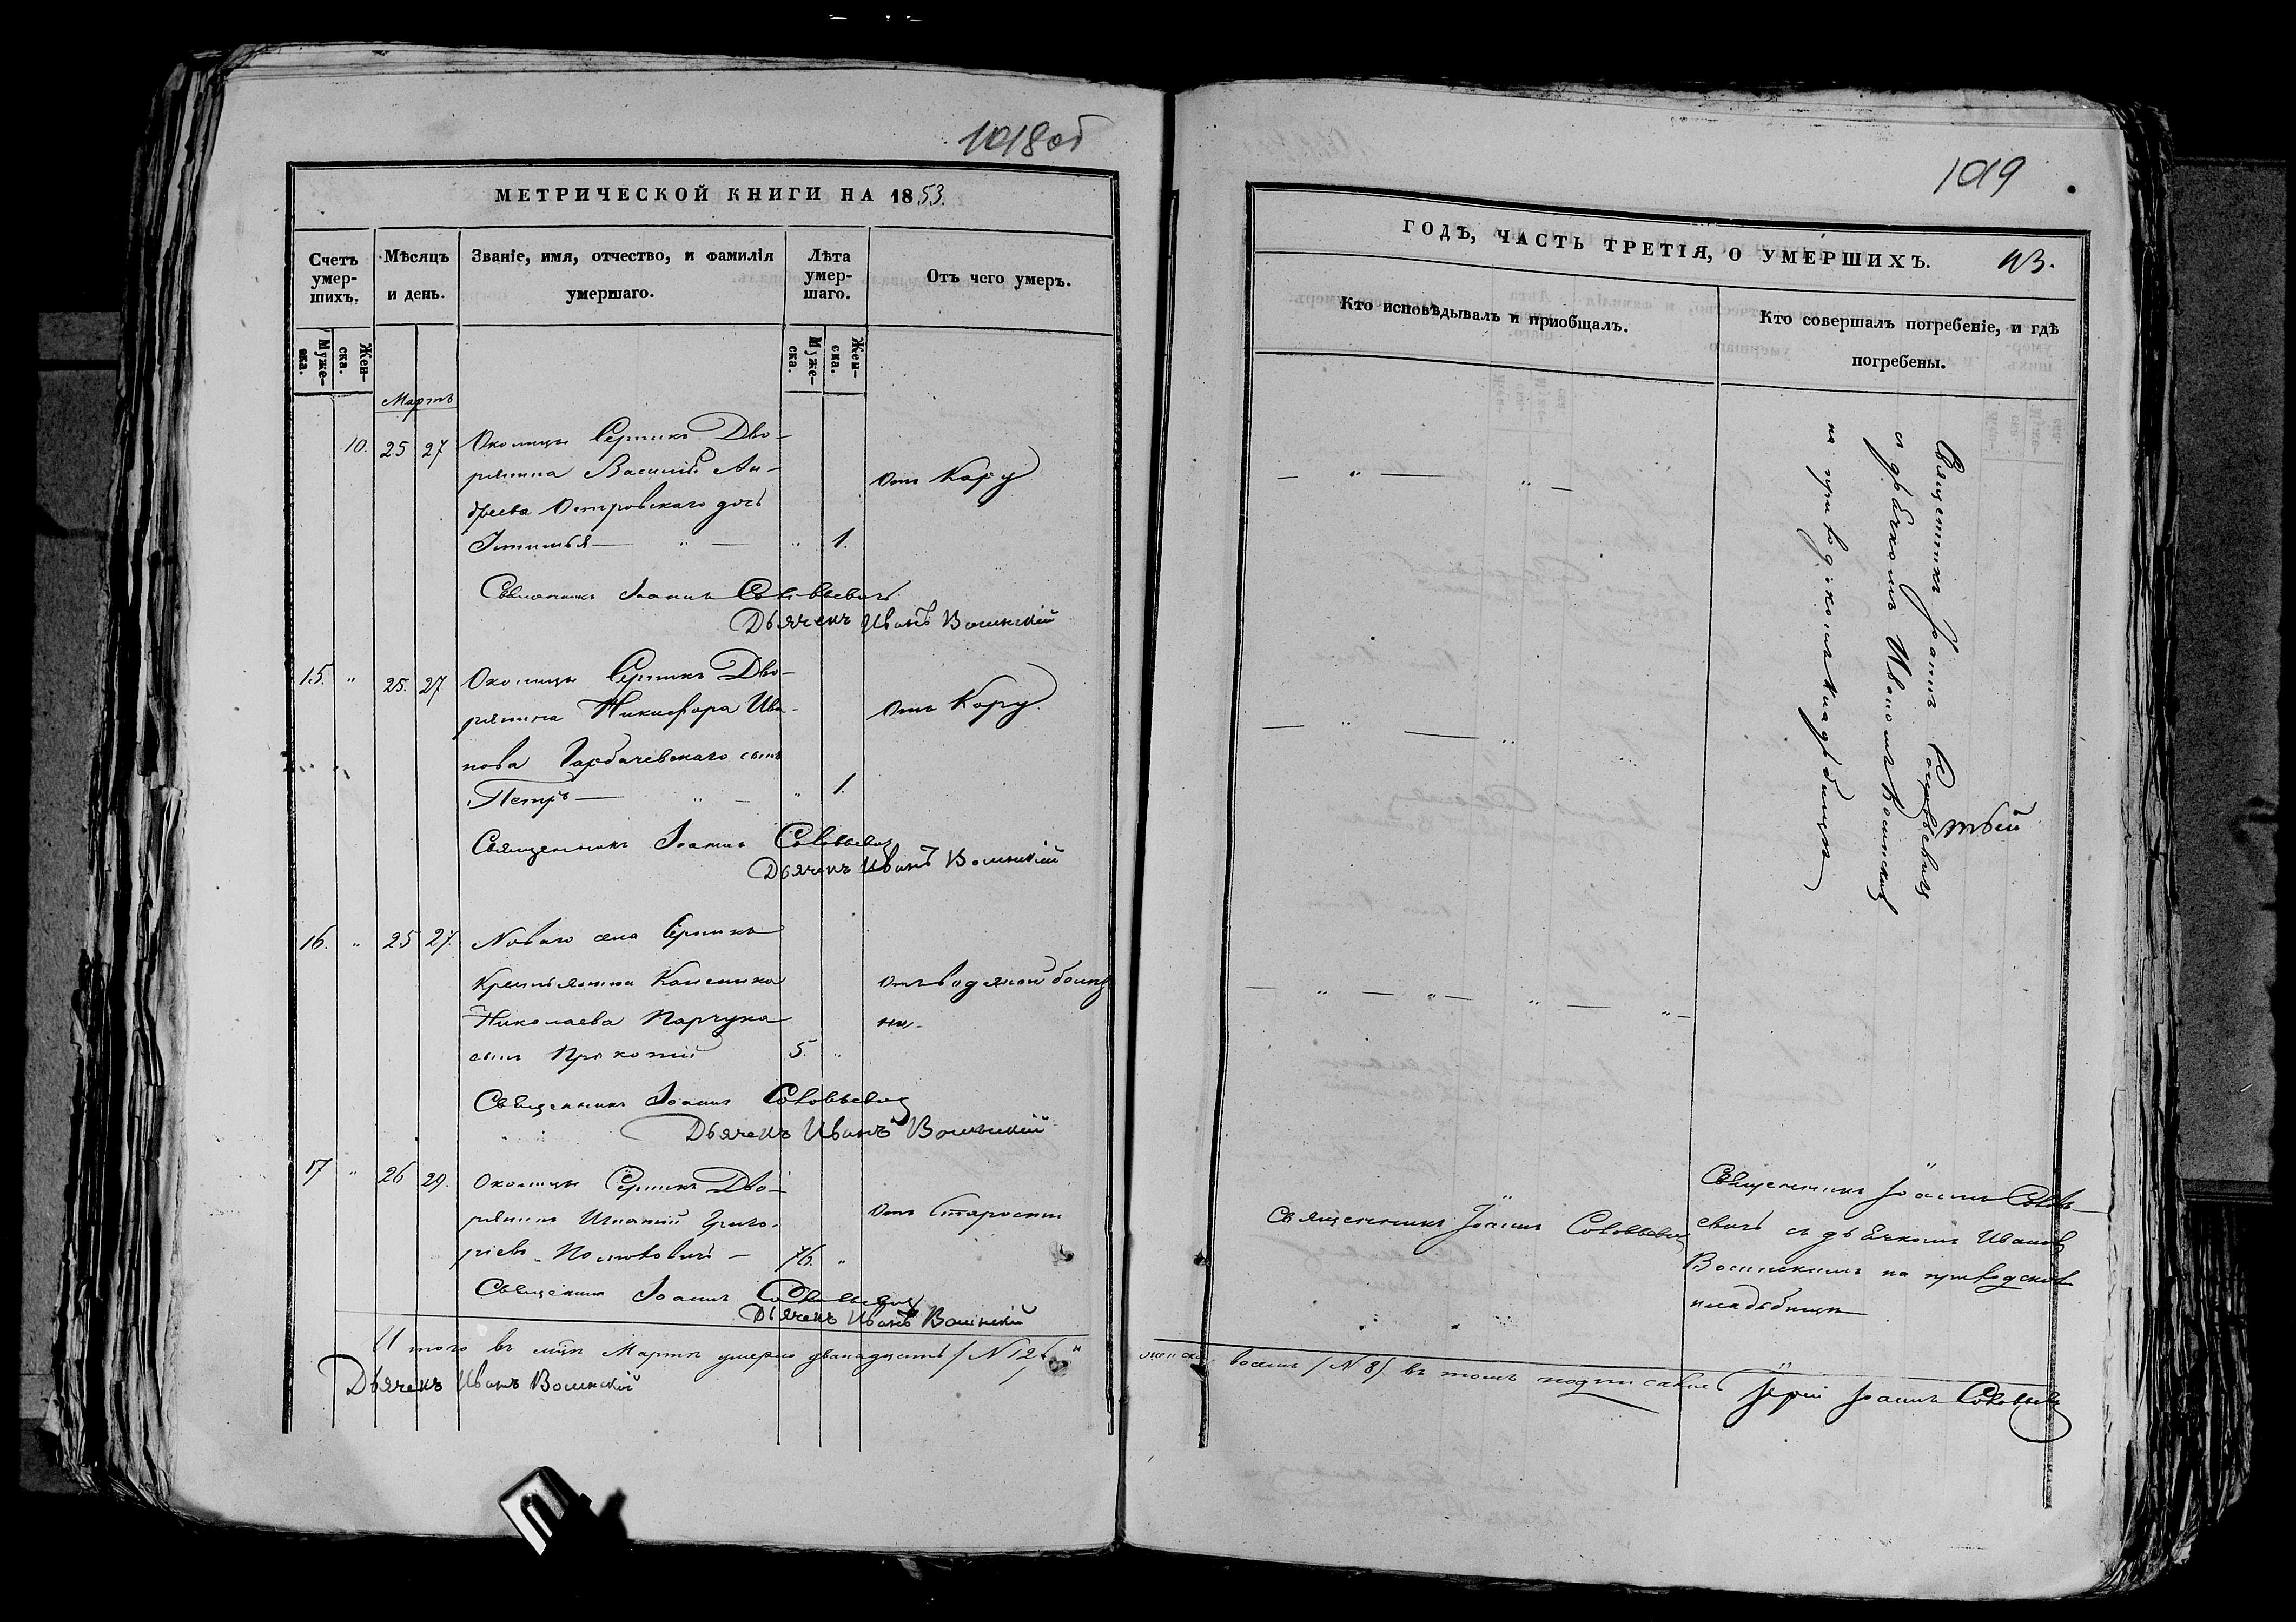 1018 об
МЕТРИЧЕСКОЙ КНИГИ НА 1853.
Счетъ умер-шихъ.
Мѣсяцъ и день.
Званіе, имя, отчество, и фамилія умершаго.
Лѣта умер-шаго.
Отъ чего умеръ.
Муже-ска.
Жен-ска.
Муже-ска.
Жен-ска.
Мартъ
10. 25 27 Околицы Серникъ Дво-
рянина Василія Ан-
дреева Островскаго дочь
1.
Отъ Кору
Священникъ Іоаннъ Соловьевичъ
Дьячекъ Иванъ Волинскій
15. " 25. 27 Околицы Серникъ Дво-
рянина Никифора Ива-
нова Горбачевскаго сынъ
Петръ — " — " 1.
Отъ Кору.
Священникъ Іоаннъ Соловьевич
Дьячекъ Иванъ Волинскій
16. " 25 27. Новаго села Серникъ
крестьянина
Николаева Парчука
сынъ Прокопій 5. "
Отъ водяной болез
ни.
Священникъ Іоаннъ Соловьевич
Дьячекъ Иванъ Волинскій
17 " 26 29. Околицы Серникъ Дво-
рянинъ Игнатій Григо-
ріевъ — 76. "
Отъ Старости
Священникъ Іоаннъ Соловьевич
Дьячекъ Иванъ Волинскій
И того въ мцѣ Мартѣ умерло двенадцать / N 12 /
Дьячекъ Иванъ Волинскій
1019
ГОДЪ, ЧАСТЬ ТРЕТІЯ, О УМЕРШИХЪ.
Кто исповѣдывалъ и пріобщалъ.
Кто совершалъ погребеніе, и гдѣ погребены.
Священникъ Іоаннъ Соловьевич
съ дьячкомъ Иваномъ Волинским
на приходскомъ кладбищѣ
Священникъ Іоаннъ Соловьевич
Священникъ Іоаннъ Солов-
евичъ съ дьячкомъ Иваном
Волинскимъ на приходском
кладбищѣ
восемь / N 8 / въ томъ подписались Іерей Іоаннъ Соловьевич